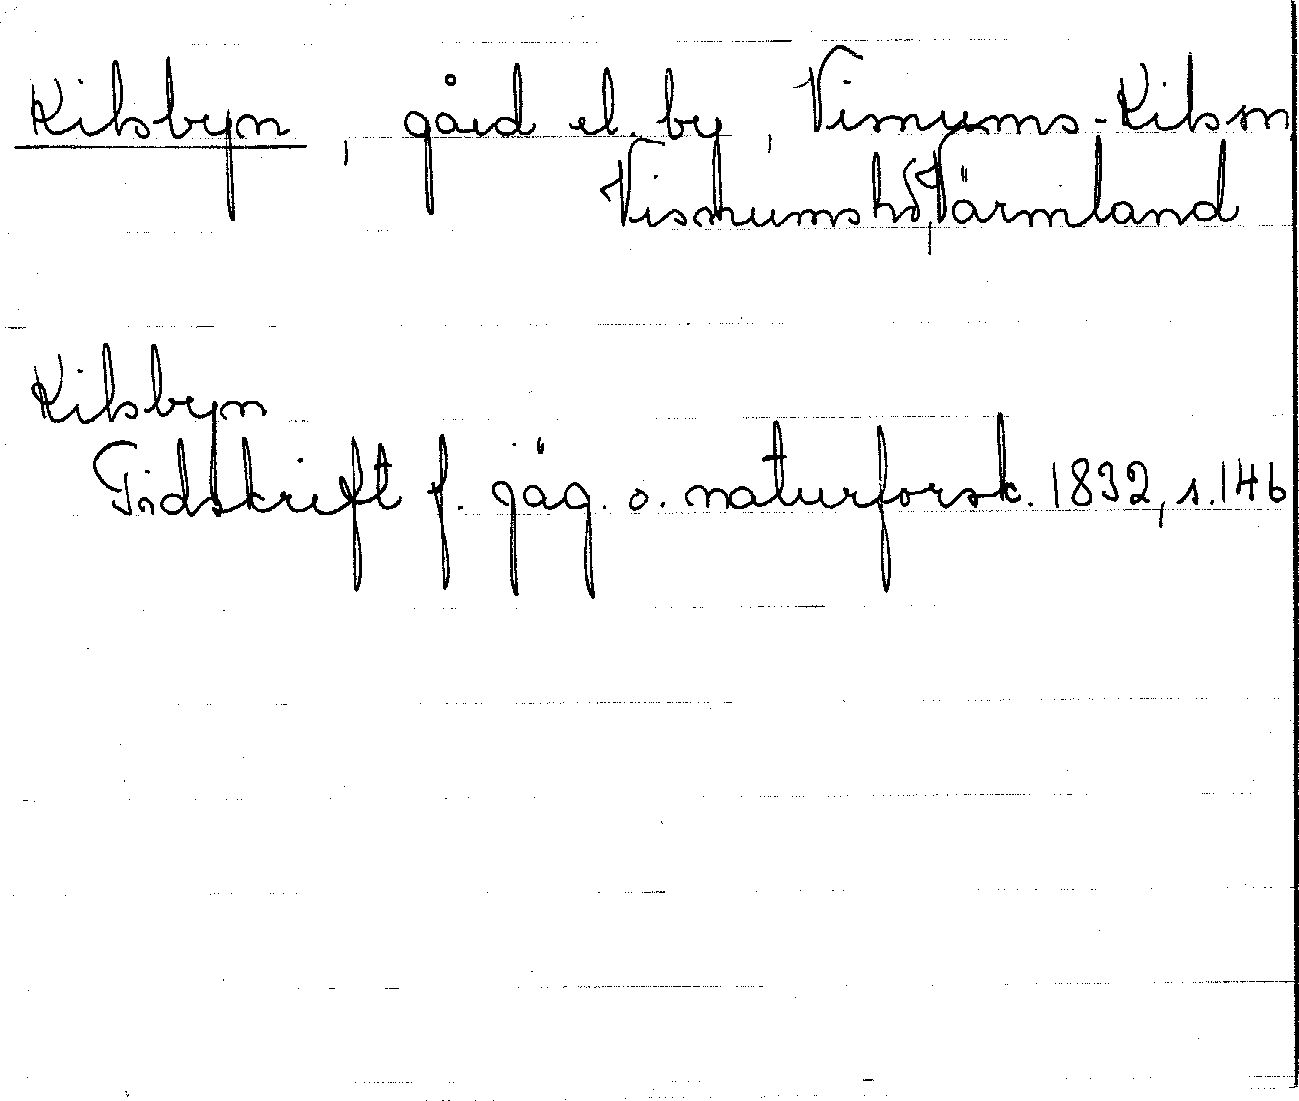 Kilsbyn, gård el. by, Visnums-Kilsn
Visnums hd, Värmland
Kilsbyn
Tidskrift f. jäg. o. naturforsk. 1832, s. 146